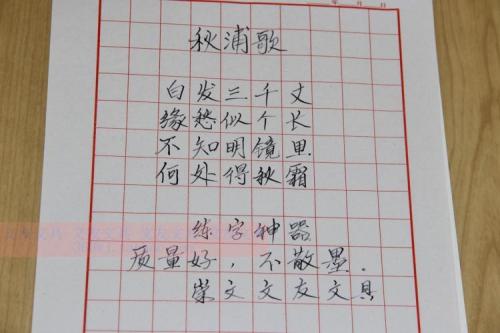 年 月 日
秋浦歌
白发三千丈
缘愁似个长
不知明镜里
何处得秋霜
练字神器
质量好，不散墨.
荣文文友文具